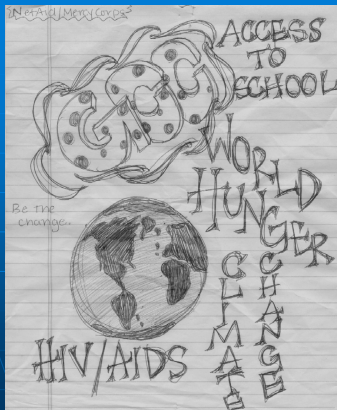 NetAid/MercyCorps
GCC
ACCESS
TO
SCHOOL
WORLD
HUNGER
Be the
change.
CLIMATE
CHANGE
HIV/AIDS